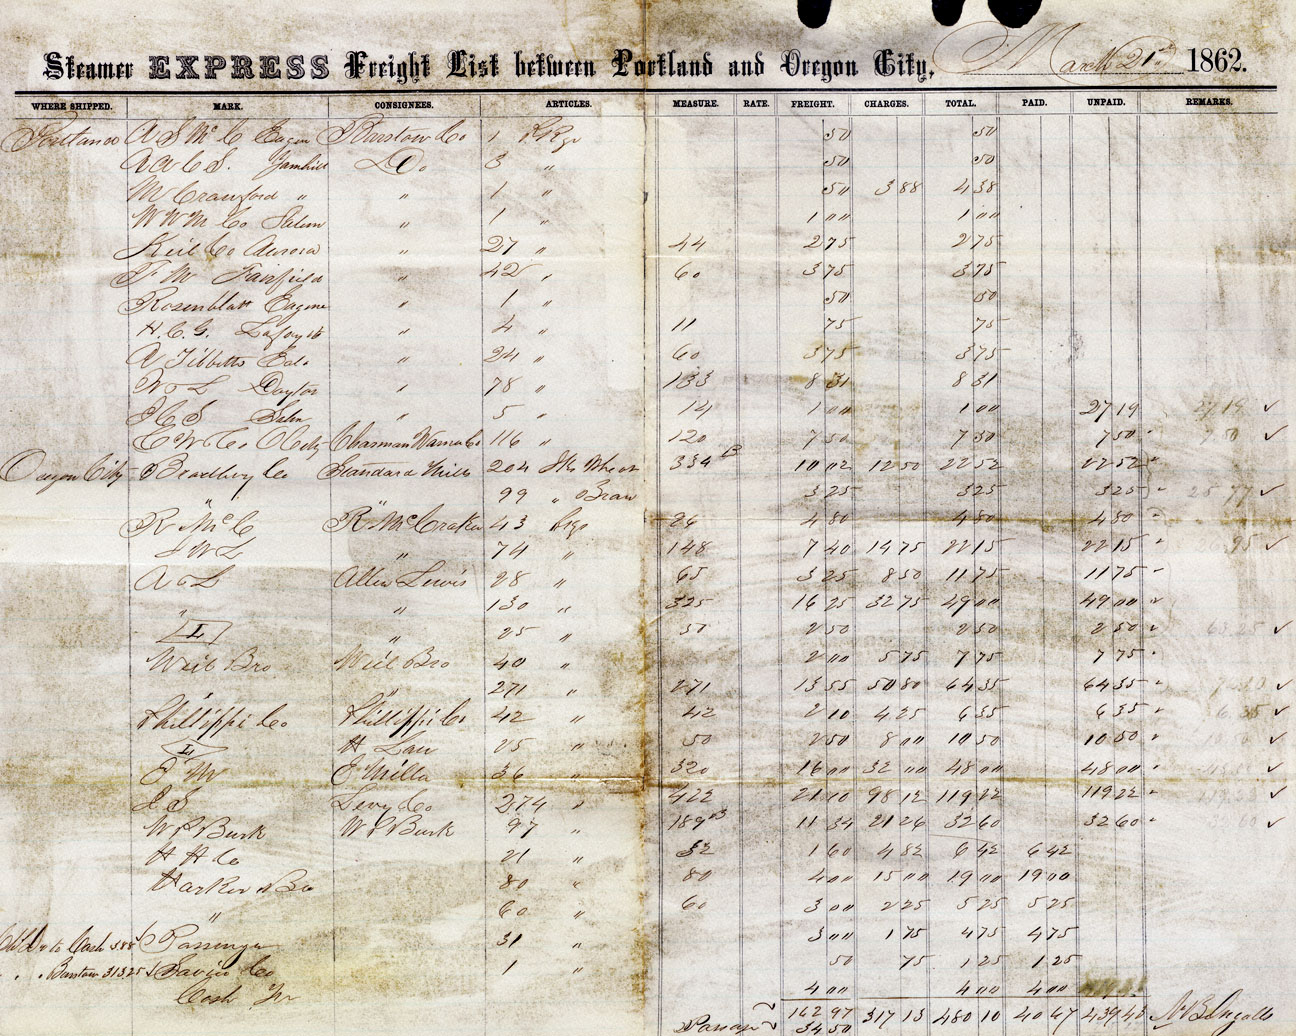 Steamer EXPRESS Freight List between Portland and Oregon City, March 21st 1862.
WHERE SHIPPED. MARK. CONSIGNEES. ARTICLES. MEASURE. RATE. FREIGHT. CHARGES. TOTAL. PAID. UNPAID. REMARKS.
Portland A S Mc C Eugen Barstow Co 1 Pkge 50 50
A A C S. Yamhill Do 3 " 50 50
M Crawford " " 1 " 50 3 88 4 38
W W M Co Salem " 1 " 1 00 1 00
Keil Co Aurora " 27 " 44 2 75 2 75
F M Fairfield " 42 " 60 3 75 3 75
Rosenblatt Eugene " 1 " 50 50
H. C. G. Lafayett " 4 " 11 75 75
A Tibbetts " 24 " 60 3 75 3 75
W & L Dayton " 78 " 133 8 31 8 31
S " 5 " 14 1 00 1 00 27 19 27 19 ✓
E W & Co O City Charman Warner Co 116 " 120 7 50 7 50 7 50 7 50 ✓
Oregon City Bradbury Co Standard Mills 204 Sks Wheat 334 13 10 02 12 50 22 52 22 52
" " 99 " Bran 3 25 3 25 3 25 25 77 ✓
R Mc C R McCraken 43 26 4 80 4 80 4 80
S W L " 74 " 148 7 40 14 75 22 15 22 15 26 95 ✓
A & L Allen Lewis 28 " 65 3 25 8 50 11 75 11 75
" " 130 " 325 16 25 32 75 49 00 49 00
L " 25 " 50 2 50 2 50 2 50 63 25 ✓
Weil Bro Weil Bro 40 " 2 00 5 75 7 75 7 75
" " 271 " 271 13 55 50 80 64 35 64 35 ✓
Phillippi Co Phillippi Co 42 " 42 2 10 4 25 6 35 6 35 6 35 ✓
L H Law 25 " 50 2 50 8 00 10 50 10 50 10 50 ✓
E M E Milla 36 " 320 16 00 32 00 48 00 48 00 ✓
J S Levy Co 274 " 422 21 10 98 12 119 22 119 22 119 22 ✓
W P Burk W P Burk 97 " 189 13 11 34 21 26 32 60 32 60 32 60 ✓
H H Co 21 " 32 1 60 4 82 6 42 6 42
Harker & Bro 80 " 80 4 00 15 00 19 00 19 00
" 60 " 60 3 00 2 25 5 25 5 25
to Cash 388 Passenger 31 " 3 00 1 75 4 75 4 75
" " Barstow 313.25 Savier Co 1 " 50 75 1 25 1 25
Cash Fr 4 00 4 00 4 00
162 97 317 13 480 10 40 67 439 43
Passage 34 50